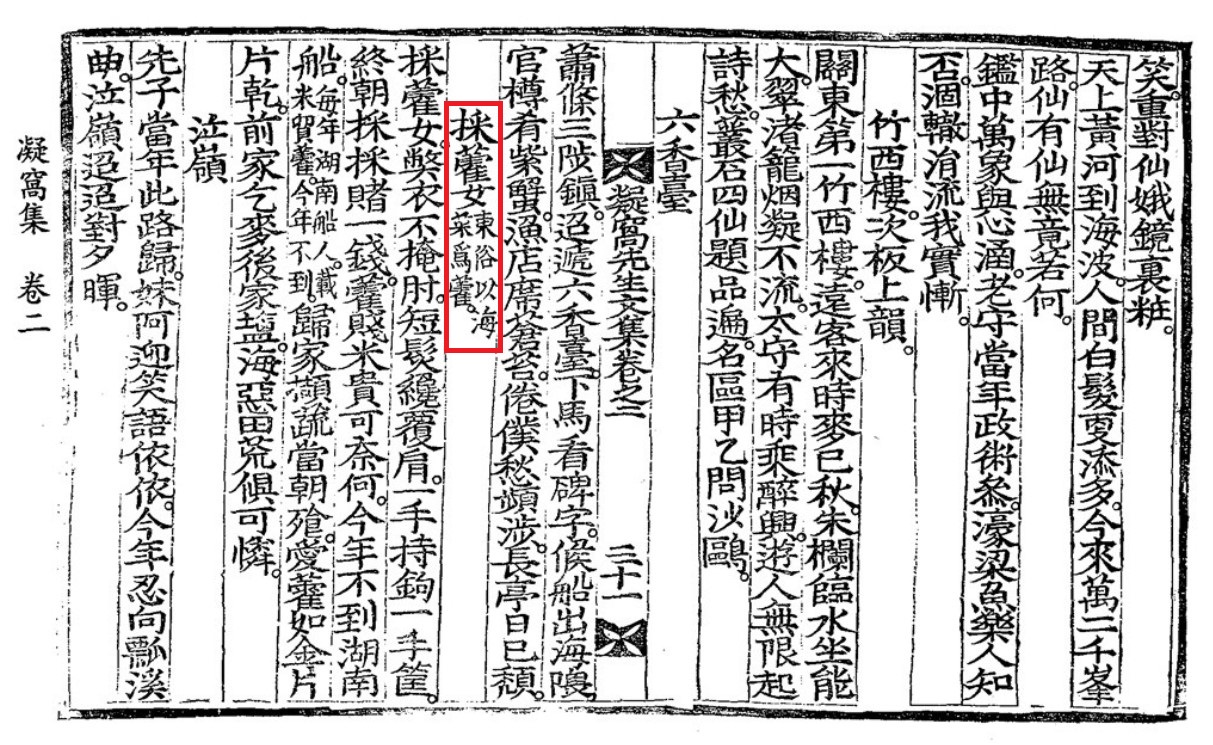 笑。重對仙娥鏡裏粧。
天上黃河到海波。人間白髮更添多。今來萬二千峯
路。仙有仙無竟若何。
鑑中萬象與心涵。老守當年政術叅。濠梁魚樂人知
否。涸轍消流我實慚。
竹西樓。次板上韻。
關東第一竹西樓。遠客來時麥已秋。朱欄臨水坐能
大。翠渚籠烟凝不流。太守有時乘醉興。遊人無限起
詩愁。叢石四仙題品遍。名區甲乙問沙鷗。
六香臺
凝窩先生文集卷之二 三十一
蕭條三陟鎭。迢遞六香臺。下馬看碑字。候船出海隈。
官樽肴紫蟹。漁店席蒼苔。倦僕愁頻涉。長亭日已頹。
採藿女 東俗以海
采爲藿。
採藿女。獘衣不掩肘。短髮纔覆肩。一手持鉤一手筐。
終朝採採賭一錢。藿賤米貴可奈何。今年不到湖南
船。每年湖南船人。載
米貿藿。今年不到。歸家擷蔬當朝飱。愛藿如金片
片乾。前家乞麥後家塩。海惡田荒俱可憐。
泣嶺
先子當年此路歸。妹阿迎笑語依依。今年忍向瓢溪
曲。泣嶺迢迢對夕暉。
凝窩集 卷二